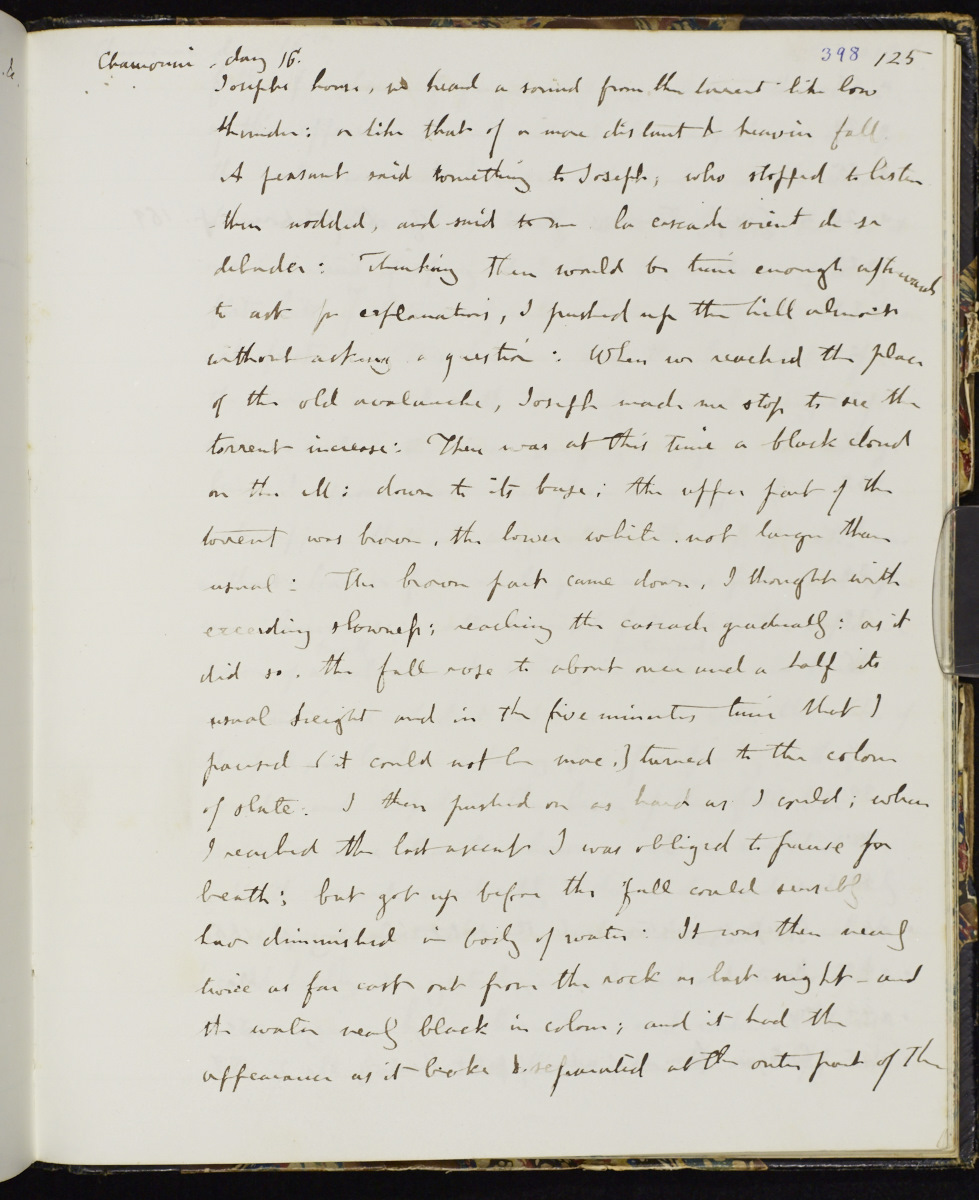 Chamouni. day 16. 398 125
Josephs house, we heard a sound from the torrent like low
thunder: or like that of a more distant & heavier fall.
A peasant said something to Joseph, who stopped to listen
then nodded, and said to me. la cascade vient de se
debader: Thinking there would be time enough afterwards
to ask for explanations, I pushed up the hill almost
without asking a question: When we reached the place
of the old avalanche, Joseph made me stop to see the
torrent increase: There was at this time a black cloud
on the : down to its base; the upper part of the
torrent was brown, the lower white. not larger than
usual: The brown part came down, I thought with
exceeding slowness; reaching the cascade gradually: as it
did so. the fall rose to about once and a half its
usual height and in the five minutes time that I
paused (it could not be more,) turned to the colour
of slate. I then pushed on as hard as I could; when
I reached the last ascent I was obliged to pause for
breath; but got up before the fall could sensibly
have diminished in body of water: It was then nearly
twice as far cast out from the rock as last night - and
the water nearly black in colour; and it had the
appearance as it broke & separated at the outer part of the